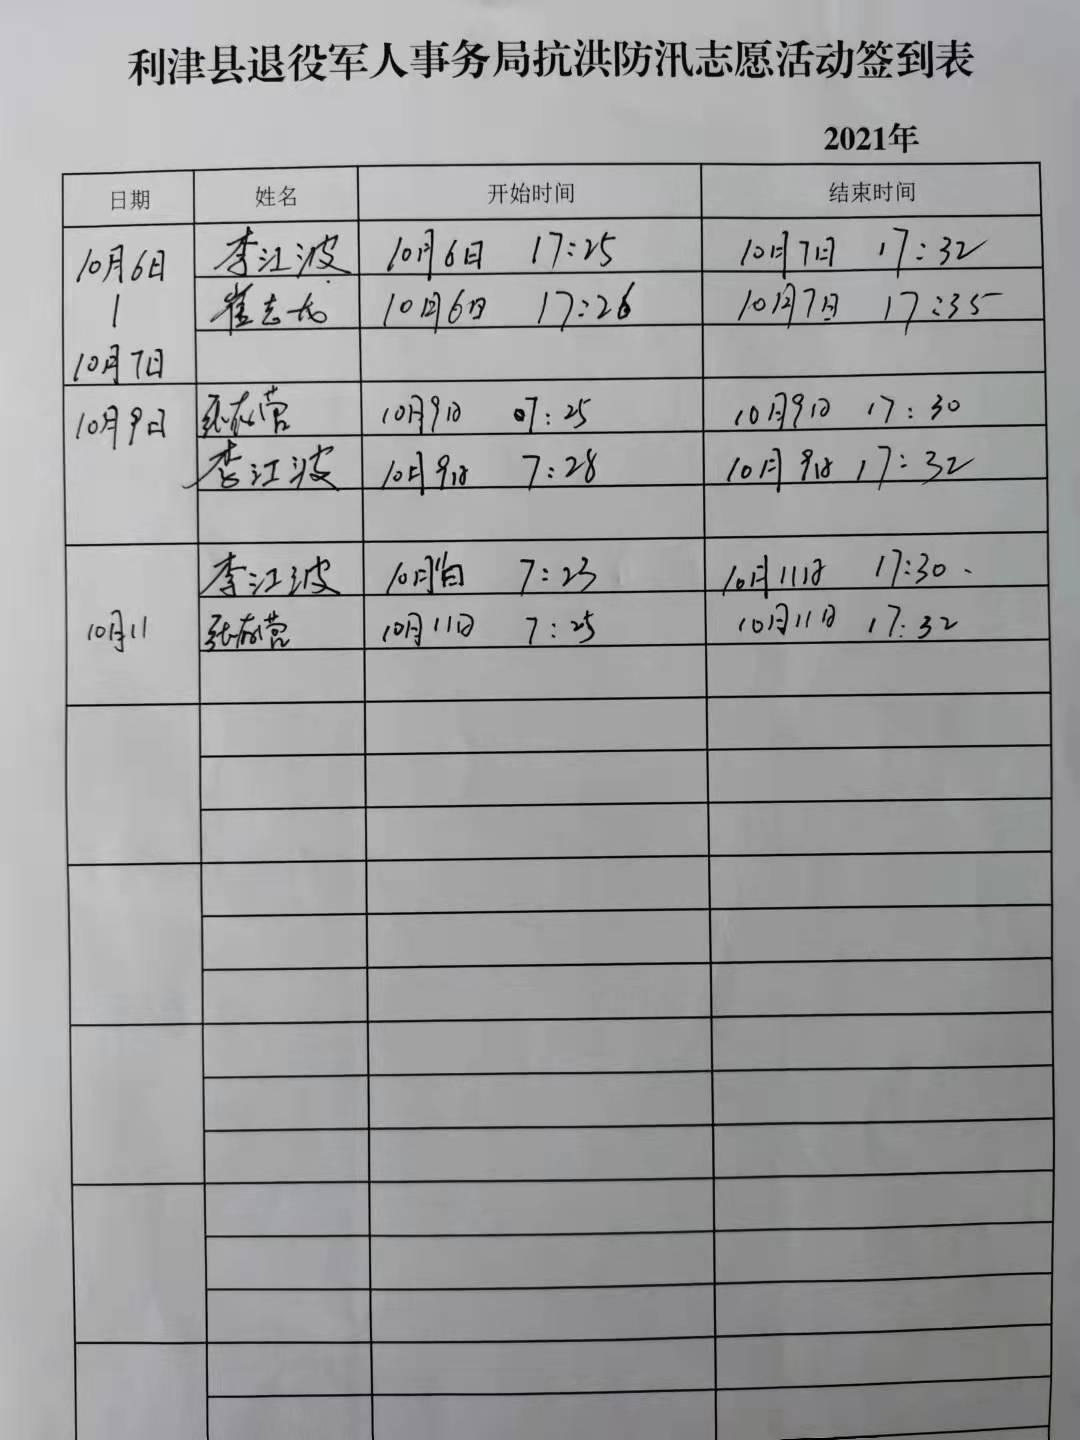 利津县退役军人事务局抗洪防汛志愿活动签到表
2021年
日期 姓名 开始时间 结束时间
10月6日 李江波 10月6日 17:25 10月7日 17:32
| 崔志 10月6日 17:26 10月7日 17:35
10月7日
10月9日 张 营 10月9日 07:25 10月9日 17:30
李江波 10月9日 7:28 10月9日 17:32
李江波 10月11日 7:23 10月11日 17:30
10月11 张 营 10月11日 7:25 10月11日 17:32